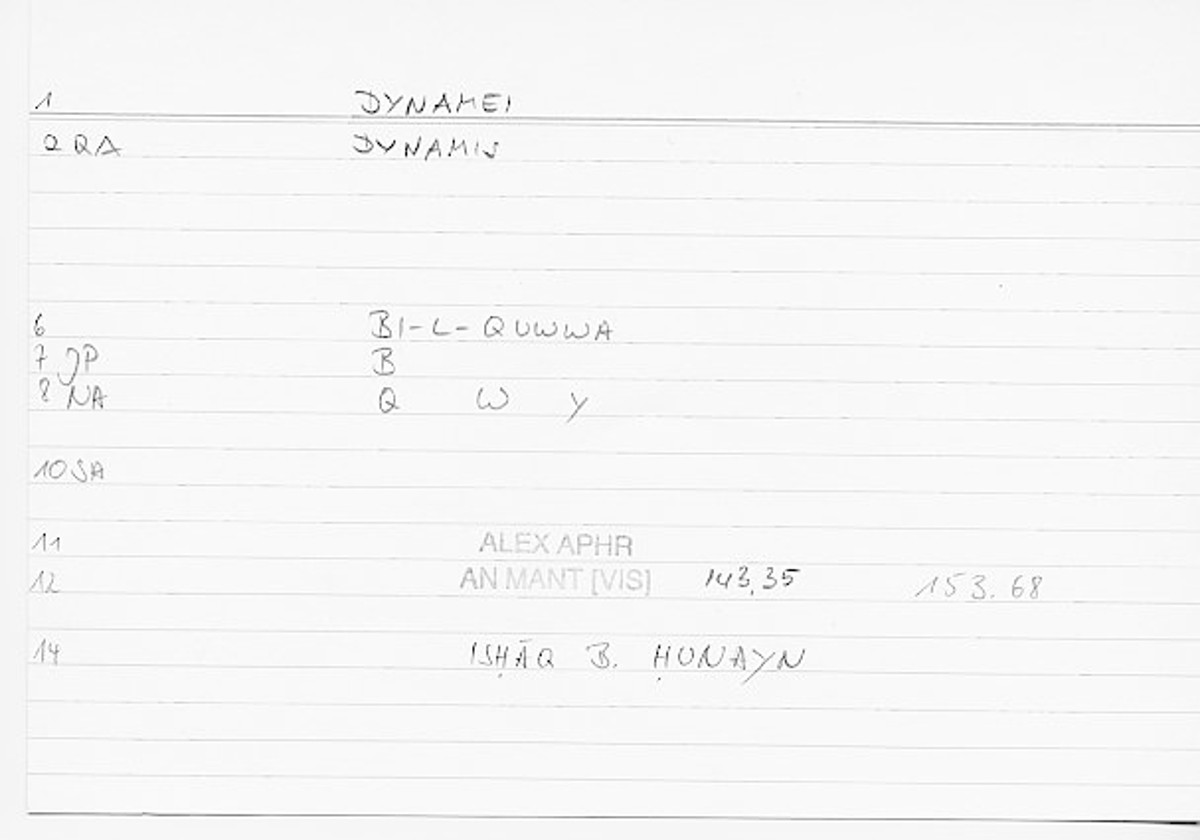 1 DYNAMEI
2 QRA DYNAMIS
6 BI-L-QUWWA
7 JP B
8 NA Q W Y
10 SA
11 ALEX APHR
12 AN MANT [VIS] 143,35 153.68
14 ISḤĀQ B. ḤUNAYN